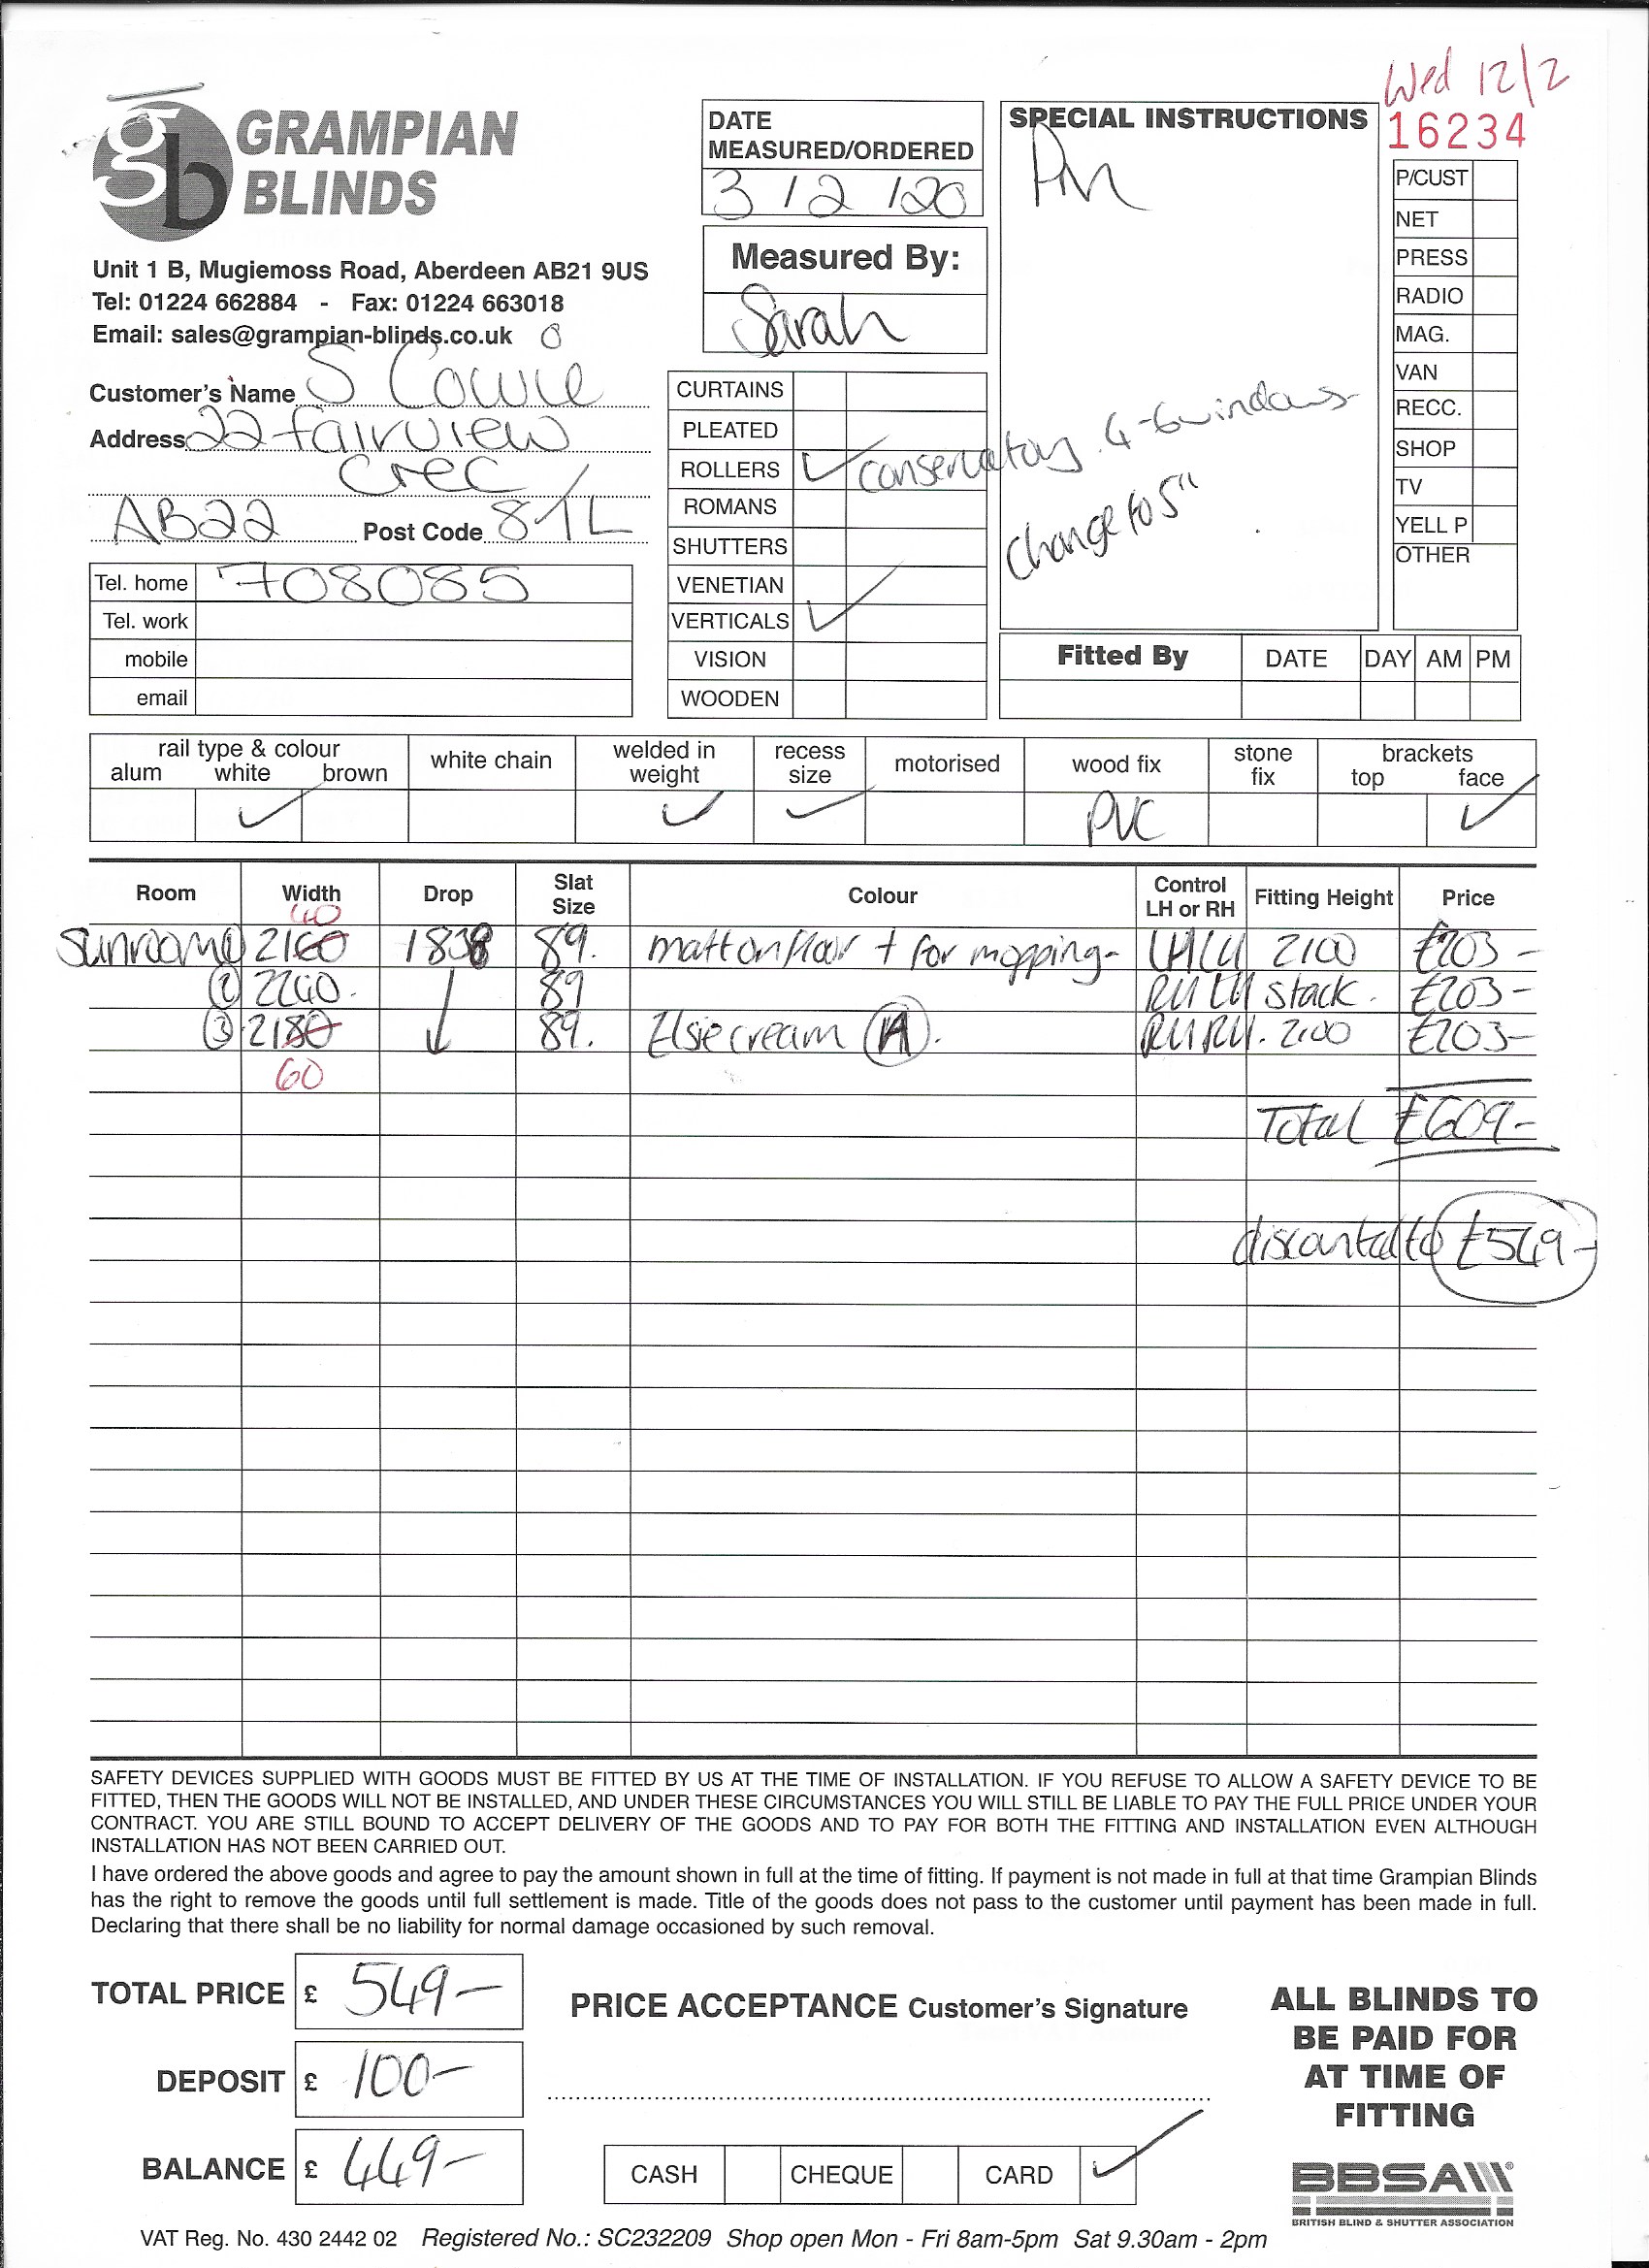 Wed 12/2
16234
gb GRAMPIAN
BLINDS
Unit 1 B, Mugiemoss Road, Aberdeen AB21 9US
Tel: 01224 662884 - Fax: 01224 663018
Email: sales@grampian-blinds.co.uk
Customer's Name S Cowie
Address 22 fairview
Cres
AB22 Post Code 8TL
Tel. home 708085
Tel. work
mobile
email
DATE
MEASURED/ORDERED
3 / 2 / 20
Measured By:
Sarah
CURTAINS
PLEATED
ROLLERS ✓ conservatory. 4-6 windows
ROMANS
SHUTTERS
VENETIAN
VERTICALS ✓
VISION
WOODEN
SPECIAL INSTRUCTIONS
PM
Change to 5"
P/CUST
NET
PRESS
RADIO
MAG.
VAN
RECC.
SHOP
TV
YELL P
OTHER
Fitted By DATE DAY AM PM
rail type & colour white chain welded in recess motorised wood fix stone brackets
alum white brown weight size fix top face
✓ ✓ ✓ PVC ✓
Room Width Drop Slat Size Colour Control LH or RH Fitting Height Price
40
Sunroom ① 2160 1838 89. matt on floor + for mopping- LHLH 2100 £203-
② 2240. 89 RHLH stack. £203-
③ 2180 89. Elsie cream A. RHRH. 2100 £203-
60
Total £609-
discounted to £549-
SAFETY DEVICES SUPPLIED WITH GOODS MUST BE FITTED BY US AT THE TIME OF INSTALLATION. IF YOU REFUSE TO ALLOW A SAFETY DEVICE TO BE
FITTED, THEN THE GOODS WILL NOT BE INSTALLED, AND UNDER THESE CIRCUMSTANCES YOU WILL STILL BE LIABLE TO PAY THE FULL PRICE UNDER YOUR
CONTRACT. YOU ARE STILL BOUND TO ACCEPT DELIVERY OF THE GOODS AND TO PAY FOR BOTH THE FITTING AND INSTALLATION EVEN ALTHOUGH
INSTALLATION HAS NOT BEEN CARRIED OUT.
I have ordered the above goods and agree to pay the amount shown in full at the time of fitting. If payment is not made in full at that time Grampian Blinds
has the right to remove the goods until full settlement is made. Title of the goods does not pass to the customer until payment has been made in full.
Declaring that there shall be no liability for normal damage occasioned by such removal.
TOTAL PRICE £ 549-
DEPOSIT £ 100-
BALANCE £ 449-
PRICE ACCEPTANCE Customer's Signature
CASH CHEQUE CARD ✓
ALL BLINDS TO
BE PAID FOR
AT TIME OF
FITTING
BBSA
BRITISH BLIND & SHUTTER ASSOCIATION
VAT Reg. No. 430 2442 02 Registered No.: SC232209 Shop open Mon - Fri 8am-5pm Sat 9.30am - 2pm